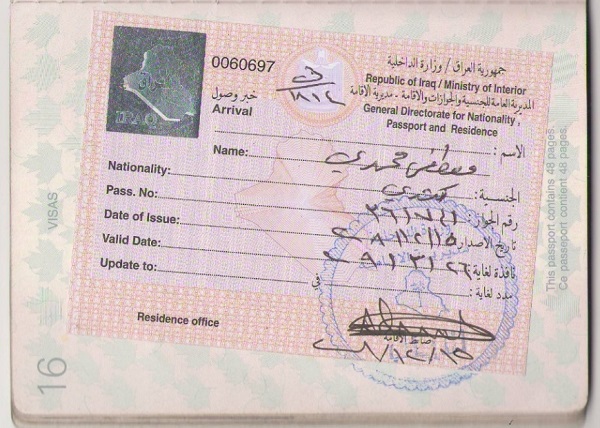 0060697
جمهورية العراق / وزارة الداخلية
Republic of Iraq / Ministry of Interior
المديرية العامة للجنسية والجوازات والاقامة - مديرية الاقامة
General Directorate for Nationality,
Passport and Residence
IRAQ
ختم وصول
Arrival
٨١٢
الاسم :
Name: مصطفى محمدي
Nationality: كندي الجنسية :
Pass. No: رقم الجواز :
Date of Issue: تاريخ الاصدار :
Valid Date: نافذة لغاية :
Update to: في مدد لغاية :
Residence office
ضابط الاقامة
VISAS
16
This passport contains 48 pages.
Ce passeport contient 48 pages.